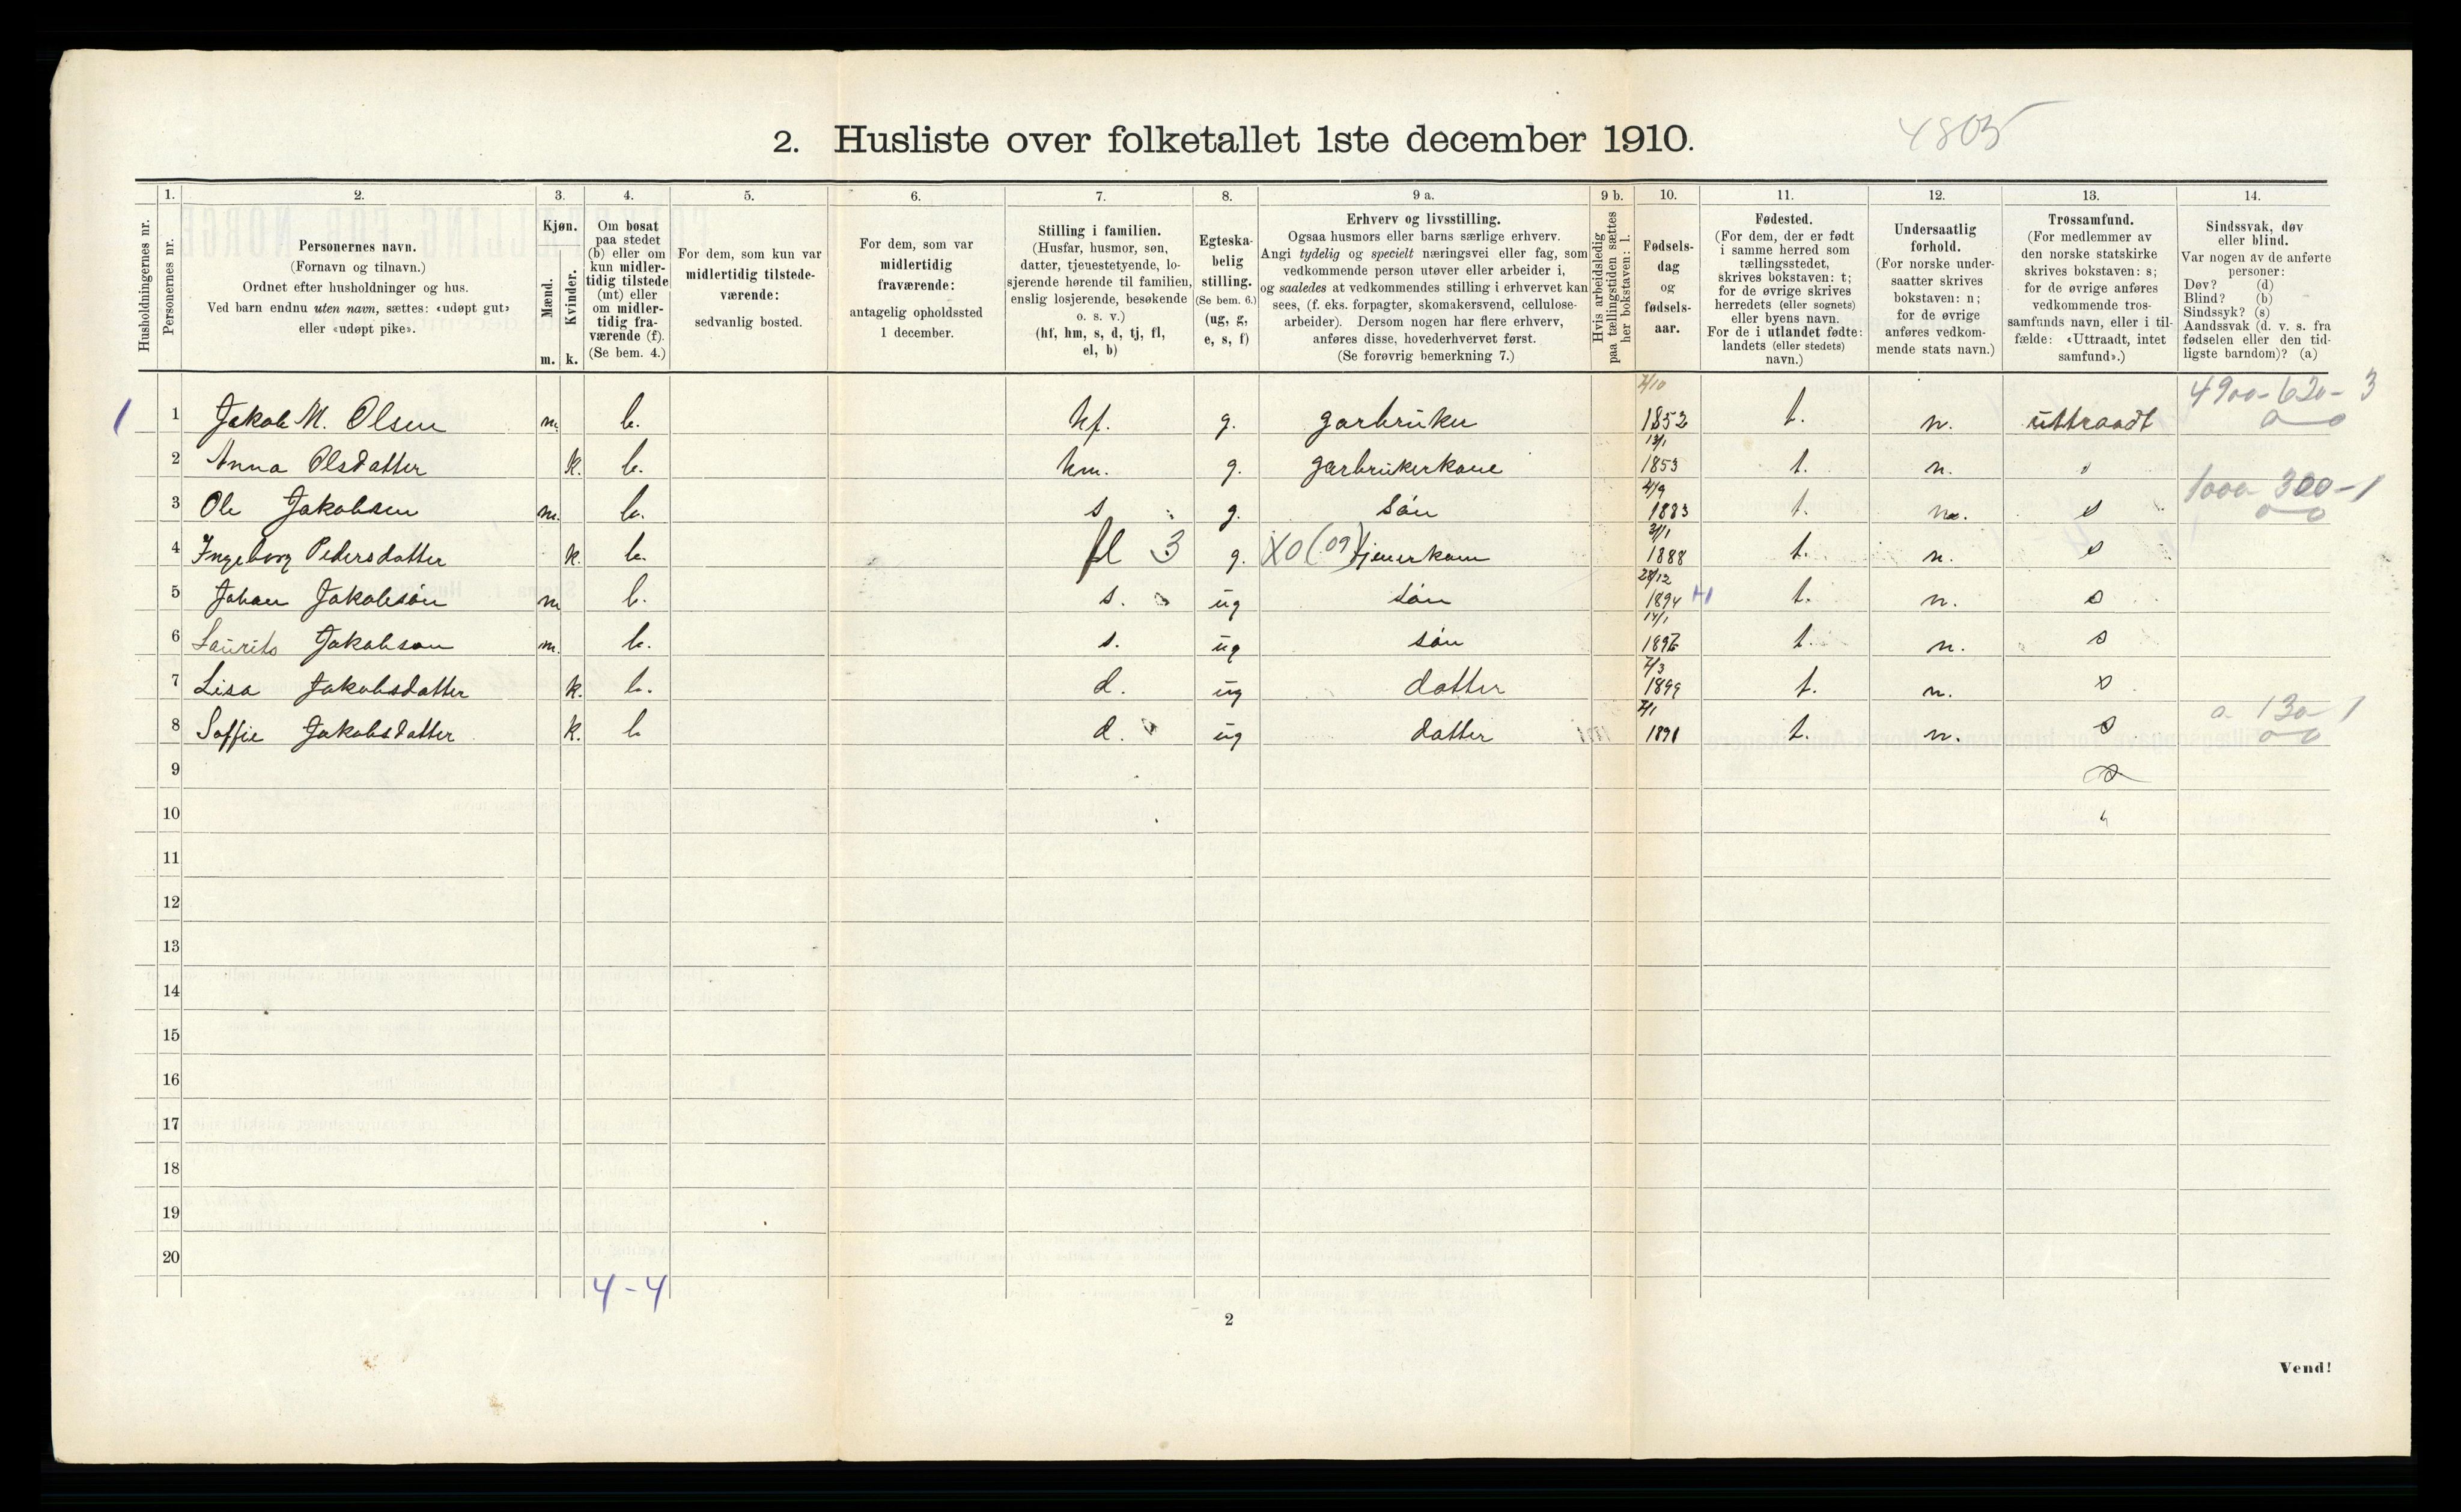 2. Husliste over folketallet 1ste december 1910.
4805
Husholdningernes nr.
1. Personernes nr.
2. Personernes navn. (Fornavn og tilnavn.) Ordnet efter husholdninger og hus. Ved barn endnu uten navn, sættes: «udøpt gut» eller «udøpt pike».
3. Kjøn. Mænd. m. Kvinder. k.
4. Om bosat paa stedet (b) eller om kun midlertidig tilstede (mt) eller om midlertidig fraværende (f). (Se bem. 4.)
5. For dem, som kun var midlertidig tilstedeværende: sedvanlig bosted.
6. For dem, som var midlertidig fraværende: antagelig opholdssted 1 december.
7. Stilling i familien. (Husfar, husmor, søn, datter, tjenestetyende, losjerende hørende til familien, enslig losjerende, besøkende o. s. v.) (hf, hm, s, d, tj, fl, el, b)
8. Egteskabelig stilling. (Se bem. 6.) (ug, g, e, s, f)
9 a. Erhverv og livsstilling. Ogsaa husmors eller barns særlige erhverv. Angi tydelig og specielt næringsvei eller fag, som vedkommende person utøver eller arbeider i, og saaledes at vedkommendes stilling i erhvervet kan sees, (f. eks. forpagter, skomakersvend, cellulosearbeider). Dersom nogen har flere erhverv, anføres disse, hovederhvervet først. (Se forøvrig bemerkning 7.)
9 b. Hvis arbeidsledig paa tællingstiden sættes her bokstaven: l.
10. Fødselsdag og fødselsaar.
11. Fødested. (For dem, der er født i samme herred som tællingsstedet, skrives bokstaven: t; for de øvrige skrives herredets (eller sognets) eller byens navn. For de i utlandet fødte: landets (eller stedets) navn.)
12. Undersaatlig forhold. (For norske undersaatter skrives bokstaven: n; for de øvrige anføres vedkommende stats navn.)
13. Trossamfund. (For medlemmer av den norske statskirke skrives bokstaven: s; for de øvrige anføres vedkommende trossamfunds navn, eller i tilfælde: «Uttraadt, intet samfund».)
14. Sindssvak, døv eller blind. Var nogen av de anførte personer: Døv? (d) Blind? (b) Sindssyk? (s) Aandssvak (d. v. s. fra fødselen eller den tidligste barndom)? (a)
4900-620-3
1 1 Jakob M. Olsen m. b. hf. g. garbruker 7/10 1852 t. n. uttraadt
2 Anna Olsdatter k. b. hm. g. garbrukerkone 13/1 1853 t. n. "
1000-300-1
3 Ole Jakobsen m. b. s g. Søn 4/9 1883 t. n. s
4 Ingeborg Pedersdatter k. b. fl 3 g. XO (09) 31/1 1888 t. n. s
5 Johan Jakobsøn m b. s. ug søn 28/12 1894 t. n. s
6 Laurits Jakobsøn m. b. s. ug søn 14/1 1896 t. n. s
7 Lisa Jakobsdatter k. b. d. ug datter 7/3 1899 t. n. s
0-130-1
8 Soffie Jakobsdatter k. b d. ug datter 7/1 1891 t. n. s
9 s
10
11
12
13
14
15
16
17
18
19
20
4-4
2
Vend!